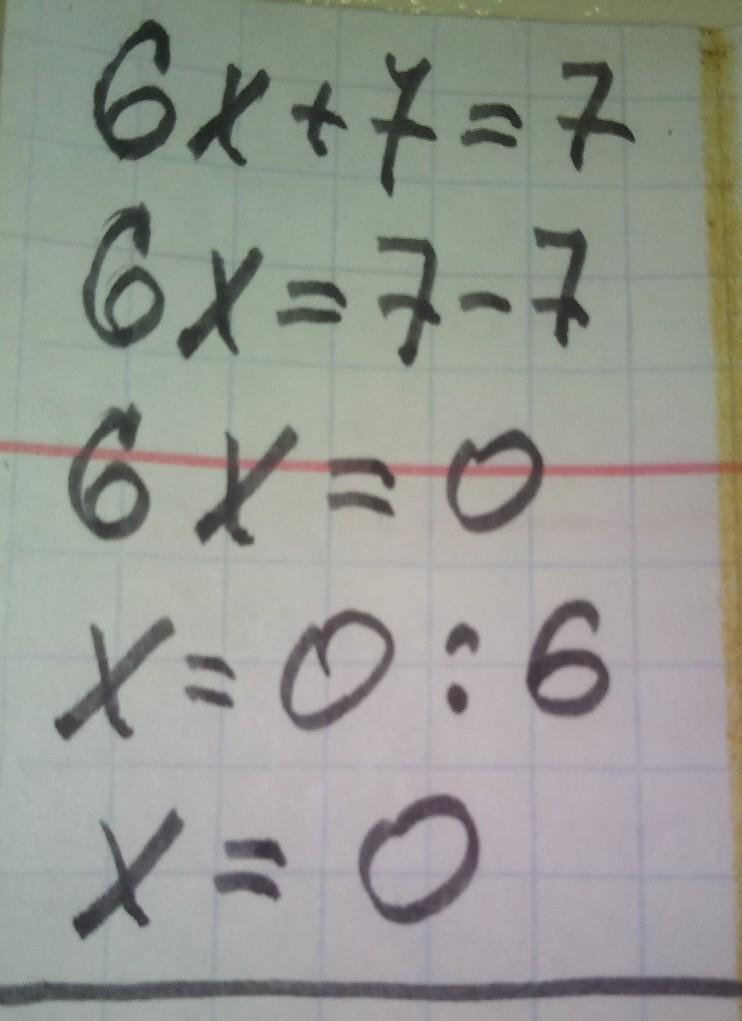 6x+7=7
6x=7-7
6x=0
x=0:6
x=0